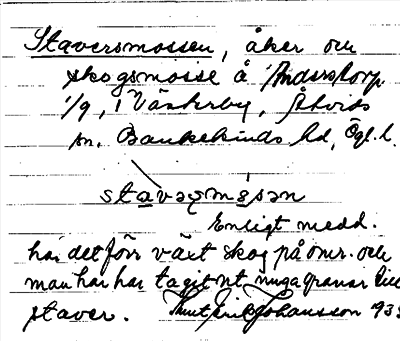 Staversmossen, åker och
skogsmosse å Anderstorp
1/9, i Västerby, Åtvids
sn, Bankekinds hd, Ögl. l.
Enligt medd.
har det förr växt skog på omr. och
man har här tagit ut unga granar till
staver. Knut Erik Johansson 193